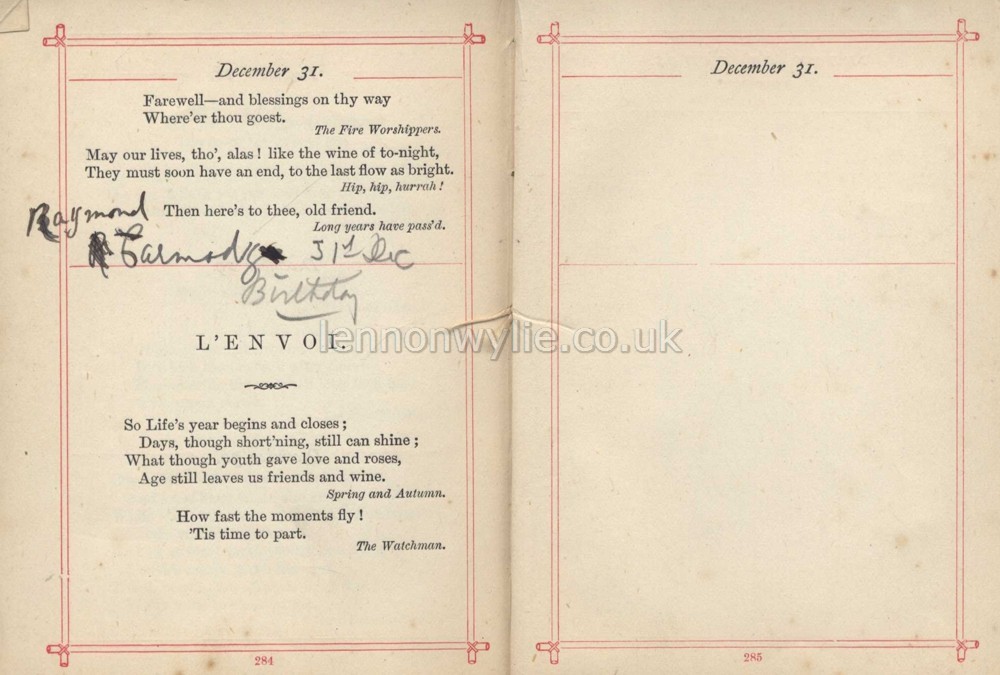 December 31.
Farewell—and blessings on thy way
Where'er thou goest.
The Fire Worshippers.
May our lives, tho', alas! like the wine of to-night,
They must soon have an end, to the last flow as bright.
Hip, hip, hurrah!
Then here's to thee, old friend.
Long years have pass'd.
Raymond
31st Dec
Birthday
L'ENVOI.
So Life's year begins and closes;
Days, though short'ning, still can shine;
What though youth gave love and roses,
Age still leaves us friends and wine.
Spring and Autumn.
How fast the moments fly!
'Tis time to part.
The Watchman.
284
December 31.
285
lennonwylie.co.uk